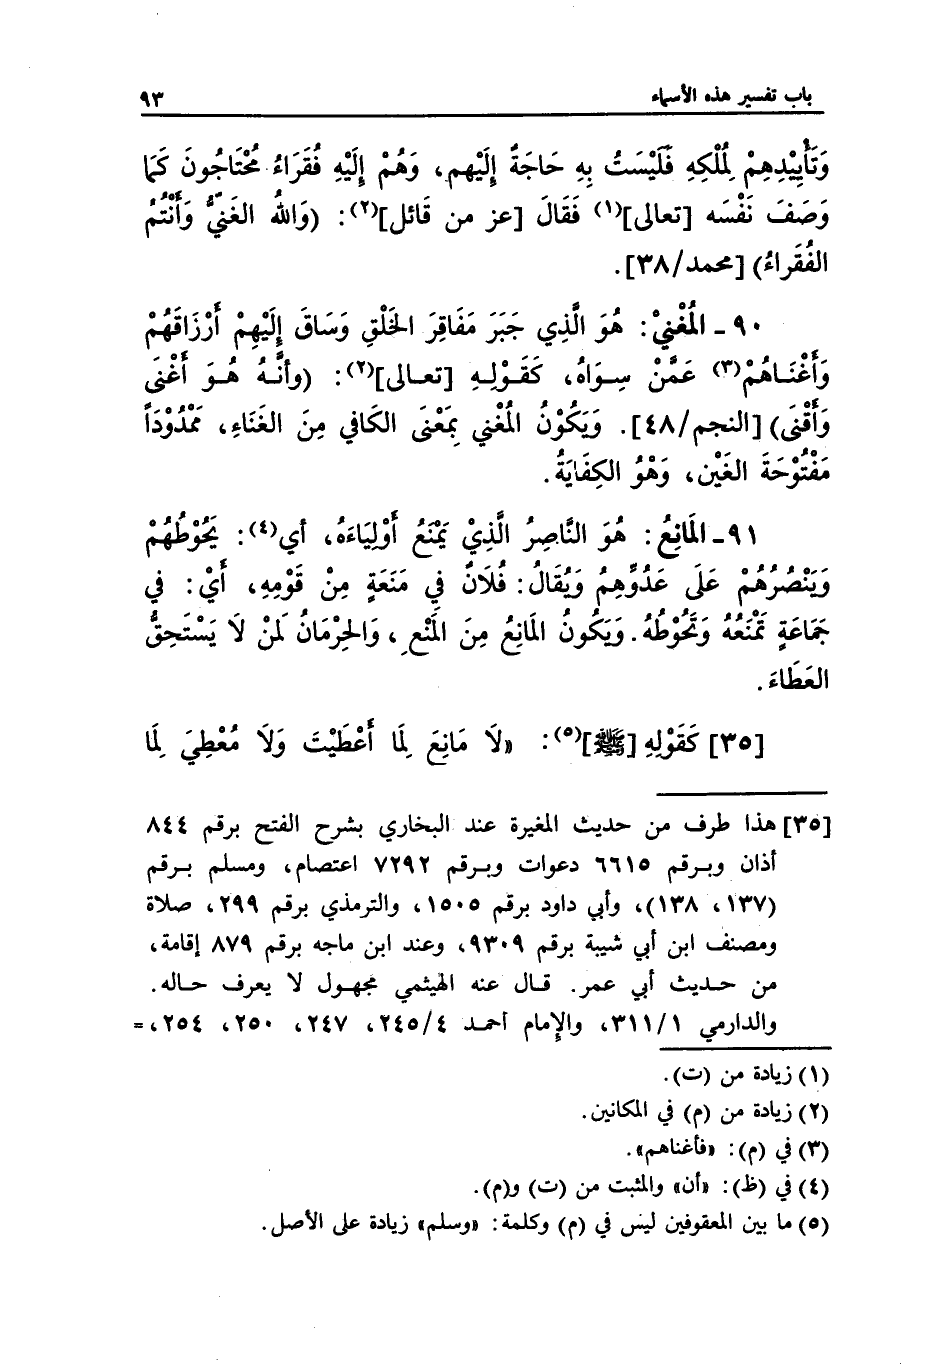 باب تفسير هذه الأسماء ٩٣
وَتَأْيِيْدِهِمْ لِمُلْكِهِ فَلَيْسَتْ بِهِ حَاجَةٌ إِلَيْهِم، وَهُمْ إِلَيْهِ فُقَرَاءُ مُحْتَاجُونَ كَمَا
وَصَفَ نَفْسَه [تعالى](١) فَقَالَ [عز من قائل](٢): (وَاللهُ الغَنِيُّ وَأَنْتُمُ
الفُقَراءُ) [محمد/٣٨].
٩٠ - المُغْنِيْ: هُوَ الَّذِي جَبَرَ مَفَاقِرَ الخَلْقِ وَسَاقَ إِلَيْهِمْ أَرْزَاقَهُمْ
وَأَغْنَاهُمْ(٣) عَمَّنْ سِوَاهُ، كَقَوْلِهِ [تعالى](٢): (وأنَّهُ هُوَ أَغْنَى
وَأَقْنَى) [النجم/٤٨]. وَيَكُوْنُ المُغْنِي بِمَعْنَى الكَافِي مِنَ الغَنَاءِ، مَمْدُوْدَاً
مَفْتُوْحَةَ الغَيْنِ، وَهْوُ الكِفَايَةُ.
٩١ - المَانِعُ: هُوَ النَّاصِرُ الَّذِيْ يَمْنَعُ أَوْلِيَاءَهُ، أي(٤): يَحُوْطُهُمْ
وَيَنْصُرُهُمْ عَلَى عَدُوِّهِمُ وَيُقَالُ: فُلَانٌ فِي مَنَعَةٍ مِنْ قَوْمِهِ، أَيْ: فِي
جَمَاعَةٍ تَمْنَعُهُ وَتَحُوْطُهُ. وَيَكُونُ المَانِعُ مِنَ المَنْعِ، وَالحِرْمَانُ لَمِنْ لَا يَسْتَحِقُّ
العَطَاءَ.
[٣٥] كَقَوْلِهِ [ﷺ](٥): «لَا مَانِعَ لِمَا أَعْطَيْتَ وَلَا مُعْطِيَ لِمَا
[٣٥] هذا طرف من حديث المغيرة عند البخاري بشرح الفتح برقم ٨٤٤
أذان وبرقم ٦٦١٥ دعوات وبرقم ٧٢٩٢ اعتصام، ومسلم برقم
(١٣٧، ١٣٨)، وأبي داود برقم ١٥٠٥، والترمذي برقم ٢٩٩، صلاة
ومصنف ابن أبي شيبة برقم ٩٣٠٩، وعند ابن ماجه برقم ٨٧٩ إقامة،
من حديث أبي عمر. قال عنه الهيثمي مجهول لا يعرف حاله.
والدارمي ٣١١/١، والإمام أحمد ٢٤٥/٤، ٢٤٧، ٢٥٠، ٢٥٤، =
(١) زيادة من (ت).
(٢) زيادة من (م) في المكانين.
(٣) في (م): «فأغناهم».
(٤) في (ظ): «أن» والمثبت من (ت) و(م).
(٥) ما بين المعقوفين ليس في (م) وكلمة: «وسلم» زيادة على الأصل.